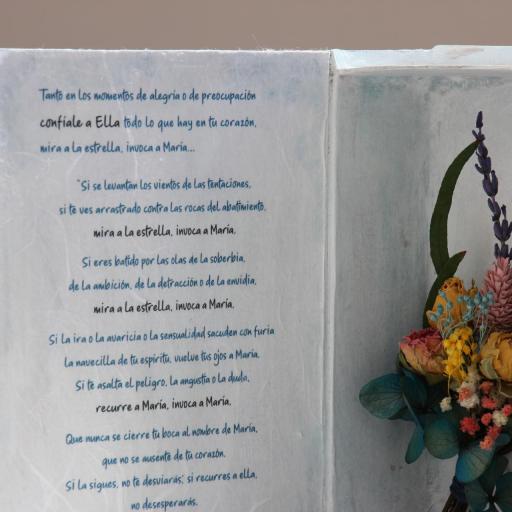 Tanto en los momentos de alegría o de preocupación
confíale a Ella todo lo que hay en tu corazón,
mira a la estrella, invoca a María...
"Si se levantan los vientos de las tentaciones,
si te ves arrastrado contra las rocas del abatimiento,
mira a la estrella, invoca a María.
Si eres batido por las olas de la soberbia,
de la ambición, de la detracción o de la envidia,
mira a la estrella, invoca a María.
Si la ira o la avaricia o la sensualidad sacuden con furia
la navecilla de tu espíritu, vuelve tus ojos a María.
Si te asalta el peligro, la angustia o la duda,
recurre a María, invoca a María.
Que nunca se cierre tu boca al nombre de María,
que no se ausente de tu corazón.
Si la sigues, no te desviarás; si recurres a ella,
no desesperarás.